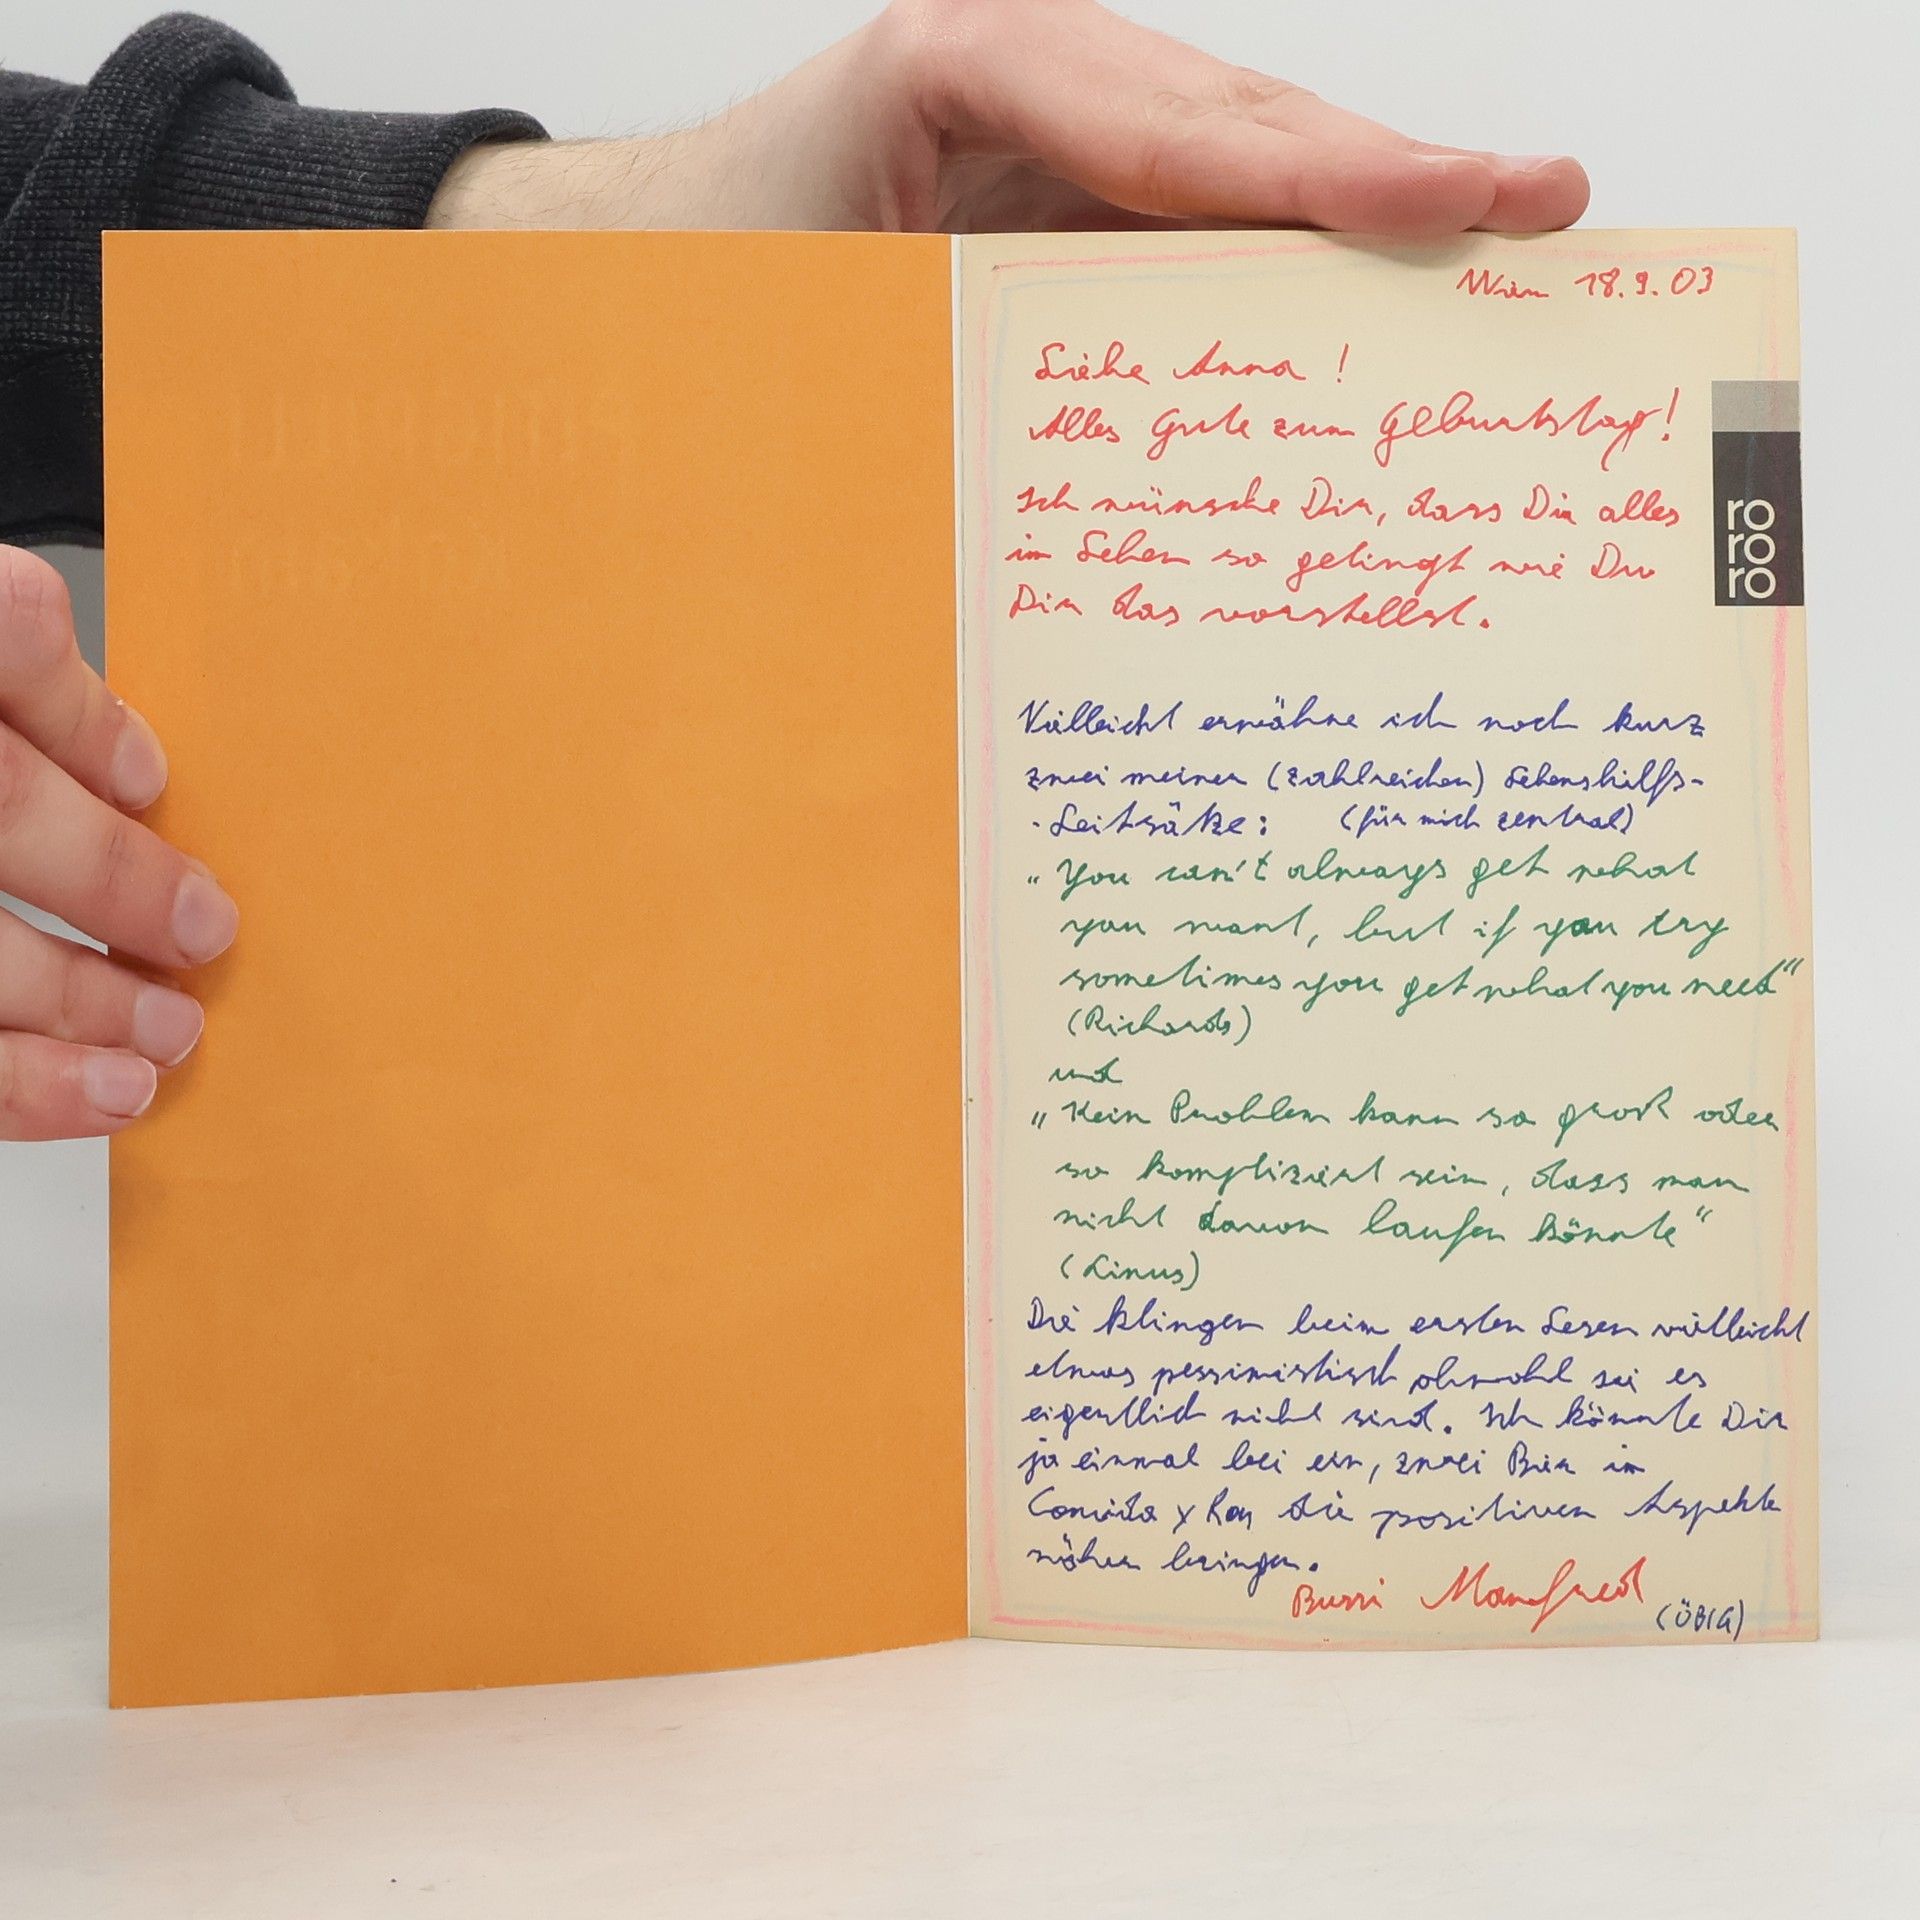 Wien 18.9.03
Liebe Anna!
Alles Gute zum Geburtstag!
Ich wünsche Dir, dass Dir alles
im Leben so gelingt wie Du
Dir das vorstellst.
ro
ro
ro
Vielleicht erwähne ich noch kurz
zwei meiner (zahlreichen) Lebenshilfs-
-Leitsätze: (für mich zentral)
„You can't always get what
you want, but if you try
sometimes you get what you need"
(Richards)
und
„Kein Problem kann so groß oder
so kompliziert sein, dass man
nicht davon laufen könnte"
(Linus)
Die klingen beim ersten Lesen vielleicht
etwas pessimistisch obwohl sie es
eigentlich nicht sind. Ich könnte Dir
ja einmal bei ein, zwei Bier im
die positiven Aspekte
näher bringen.
Bussi Manfred
(ÖBIG)